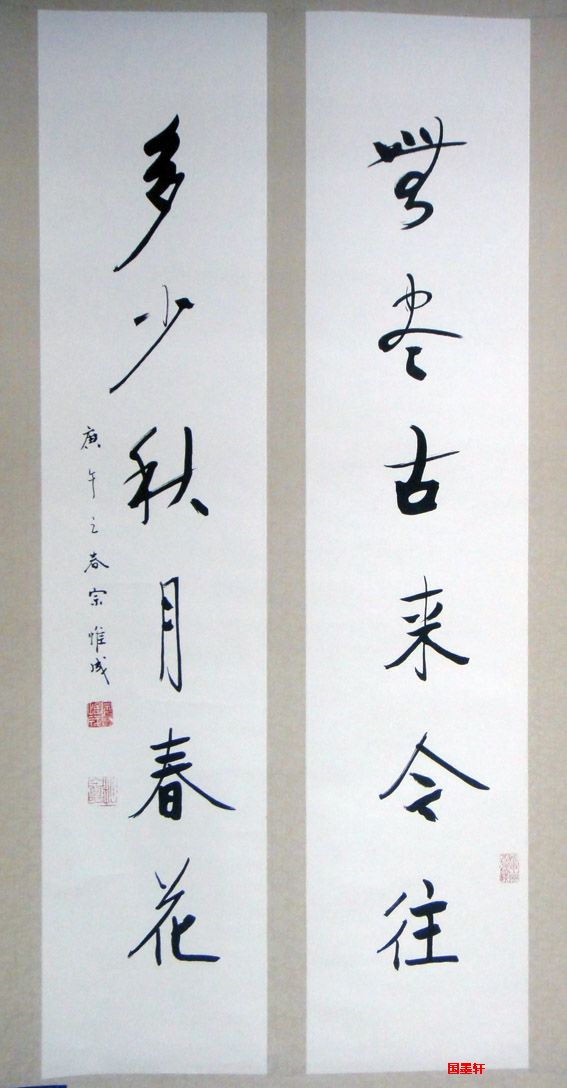 無尽古来今往
多少秋月春花
庚午之春宗惟成
国墨轩